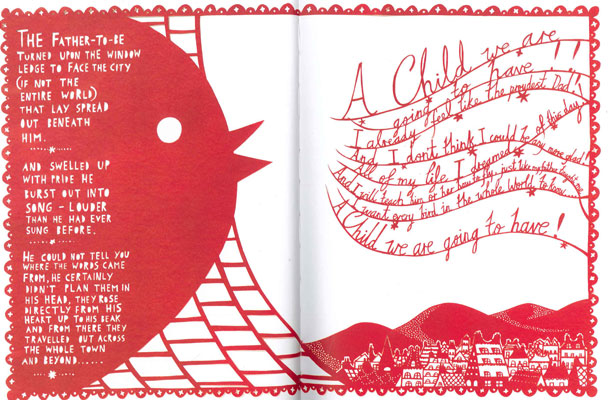 THE FATHER-TO-BE
TURNED UPON THE WINDOW
LEDGE TO FACE THE CITY
(IF NOT THE
ENTIRE WORLD)
THAT LAY SPREAD
OUT BENEATH
HIM.
AND SWELLED UP
WITH PRIDE HE
BURST OUT INTO
SONG – LOUDER
THAN HE HAD EVER
SUNG BEFORE.
HE COULD NOT TELL YOU
WHERE THE WORDS CAME
FROM, HE CERTAINLY
DIDN'T PLAN THEM IN
HIS HEAD, THEY ROSE
DIRECTLY FROM HIS
HEART UP TO HIS BEAK
AND FROM THERE THEY
TRAVELLED OUT ACROSS
THE WHOLE TOWN
AND BEYOND......
A Child we are
going to have...
I already feel like the proudest Dad!
And I don't think I could be any more glad!
All of my life I dreamed of this day,
And I will teach him or her how to fly,
I want every bird in the whole World to know,
A Child we are going to have!